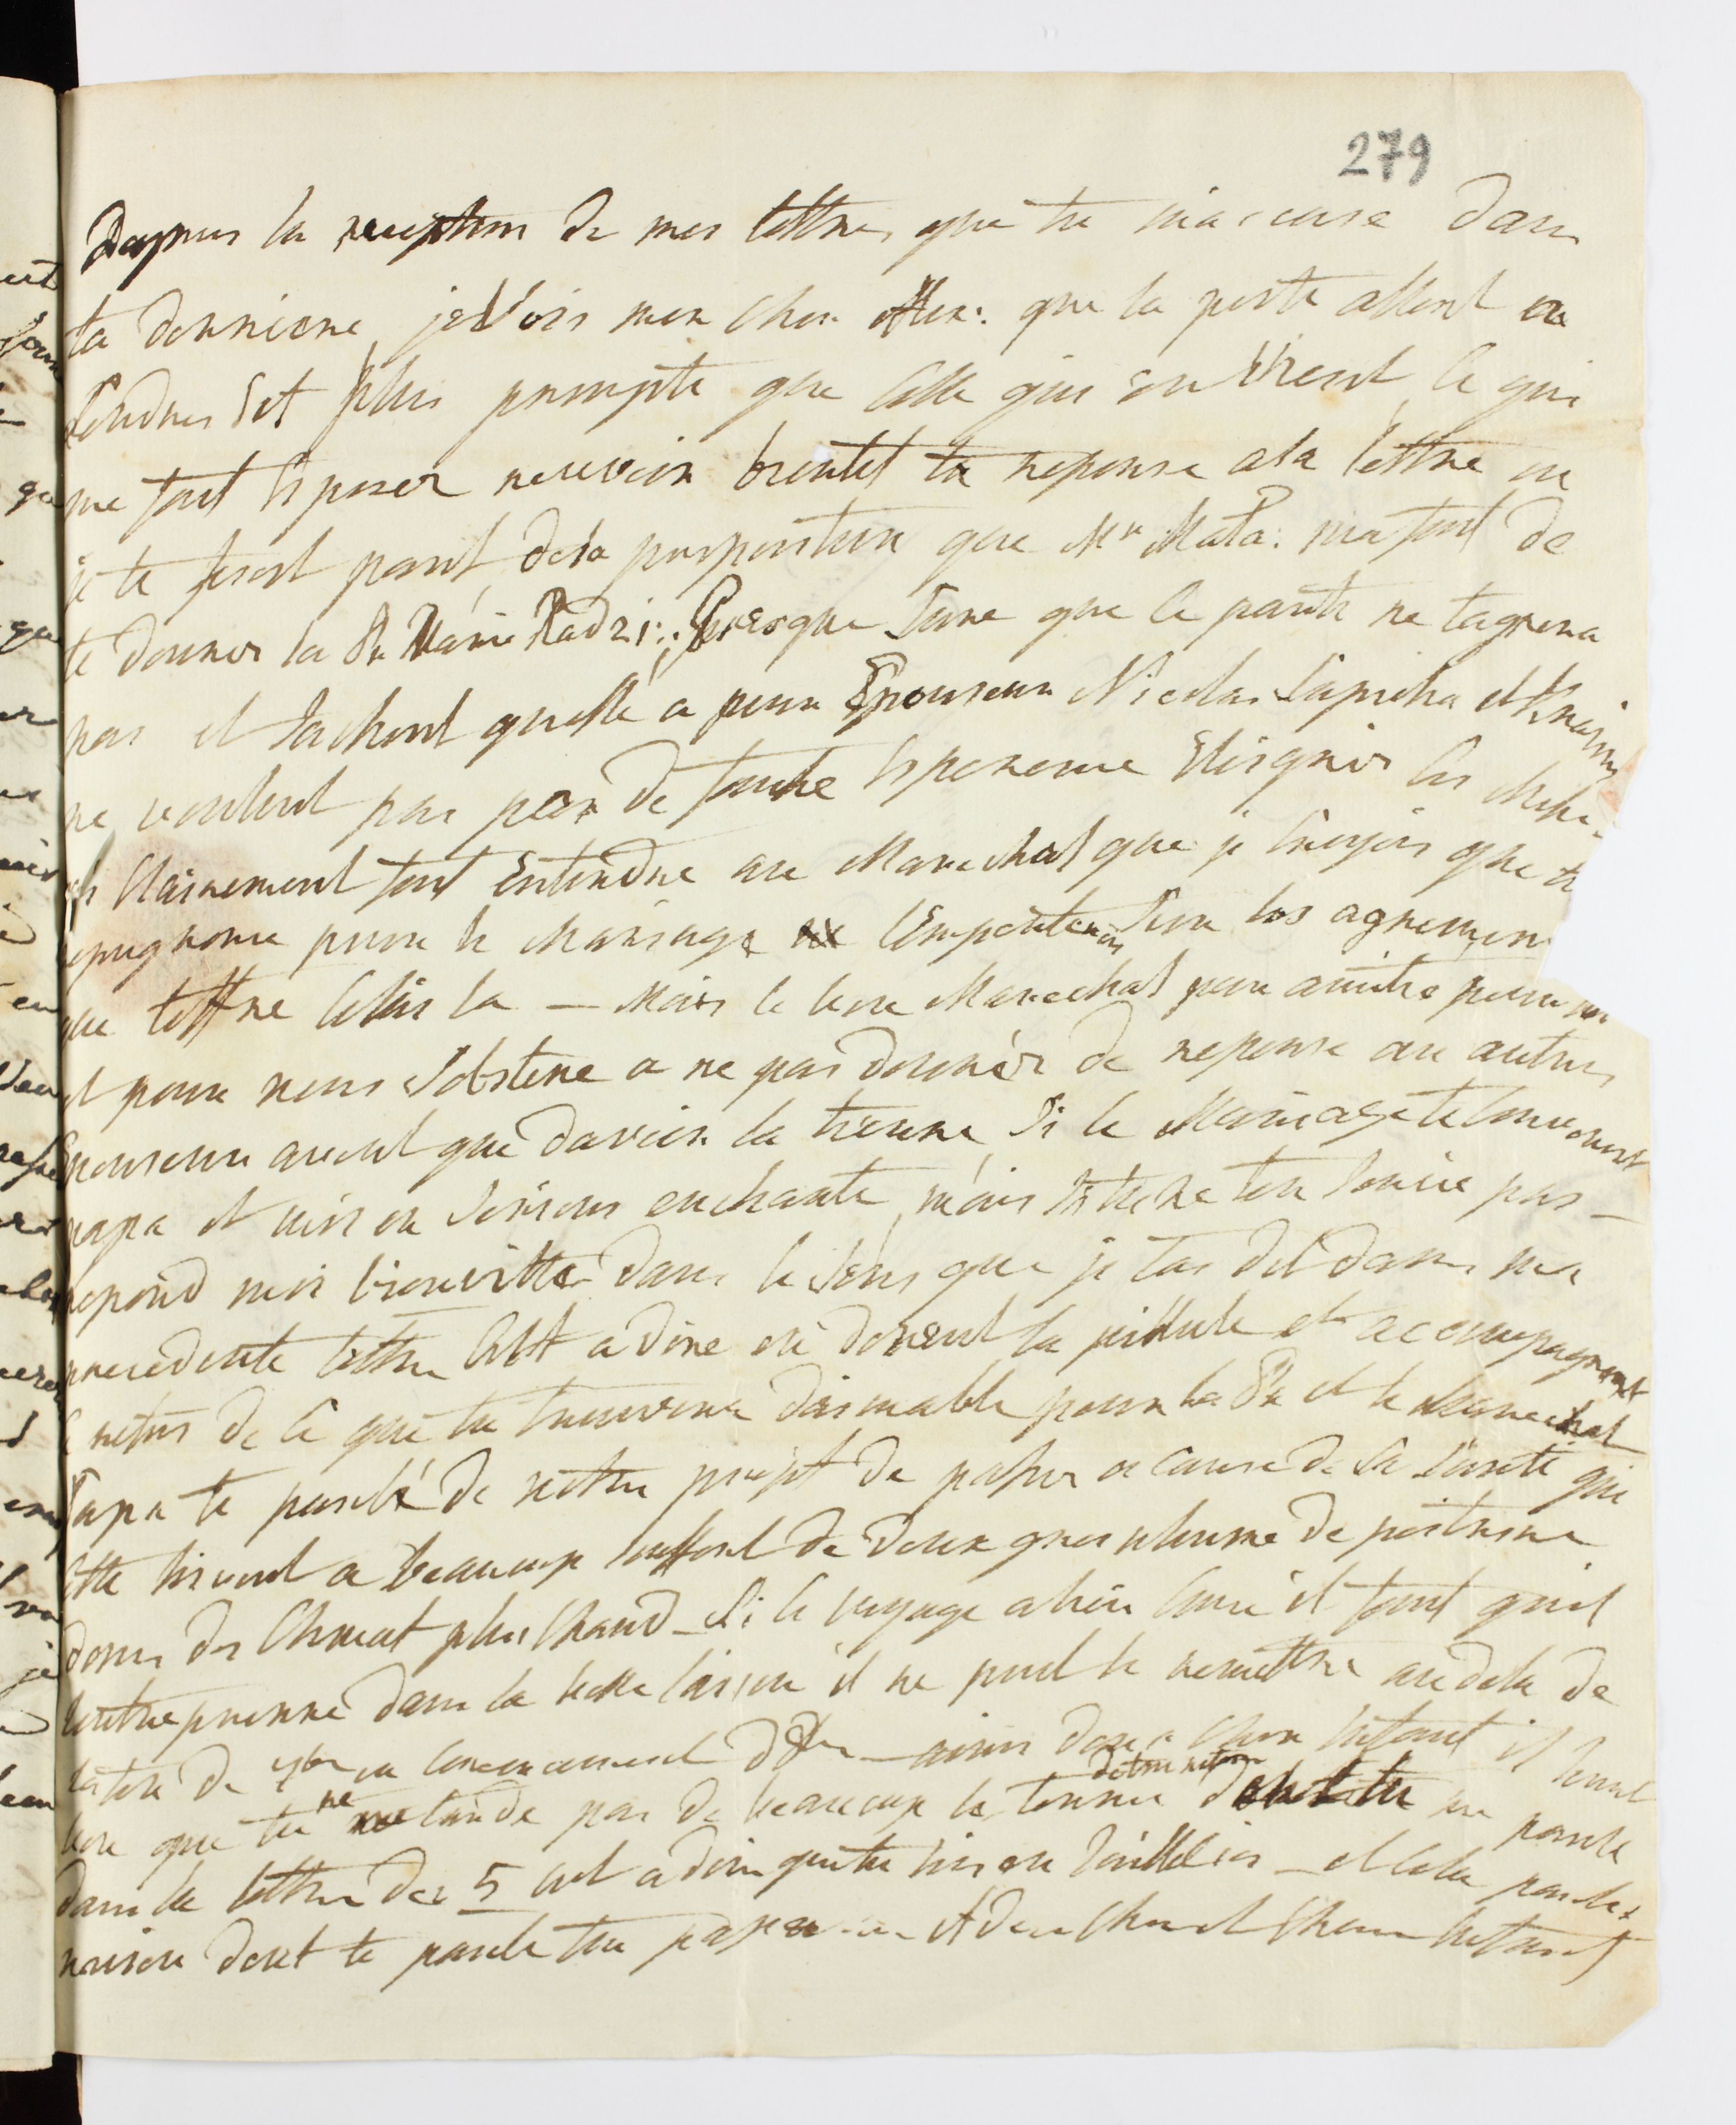 279
Dapres la reception de mes lettres que tu m'accuse dans
ta derniere je vois mon cher Alex: que la poste allent a
Londres est plus prompte que celle qui en vient, ce qui
me fait esperer recevoir bientot ta reponse a la lettre ou
je te fesait part de la proposition que Mr Mata: ma fait de
te donner la Pss Marie Radzi: Presque sure que ce partis ne tagrera
pas et sachent quelle a pour Epouseur Nicolas Sapieha et
ne voulent pas par de fausse Esperence Eloigner les
clairement fait entendre au Marechal que je croyois que ta
repugnence pour le Mariage l'emporterois sur les agremen
que toffre celui la — Mais le bon Marechal par amitie pour
et pour nous s'obstine a ne pas donner de reponse au autres
Epouseurs avent que davoir la tienne, si le Mariage te convenoit
papa et moi en serions enchante, mais si tu ne ten soucie pas —
repond moi bien vitte dans le sens que je tai dit dans ma
precedente lettre cest a dire en dorent la pillule et acompagnent
le refus de ce que tu trouvera daimable pour la Pss et le Marechal
Papa te parle de notre projet de passer a cause de sa santé qui
cette hivert a beaucoup souffert de deux gros rhume de poitrine
dans des climat plus chaud — Si le voyage a lieu il faut quil
l'entreprenne dans la belle saison il ne peut le remettre audela de
la fin de 7bre ou commencement d'8bre — ainsi donc cher Enfant il faut
bien que tu ne retarde pas de beaucoup le terme de ton retour dont tu me parle
dans ta lettre du 5 cest a dire fin Juillet — et cela par les
raison dont te parle ton papa — Adieu cher et cher Enfant